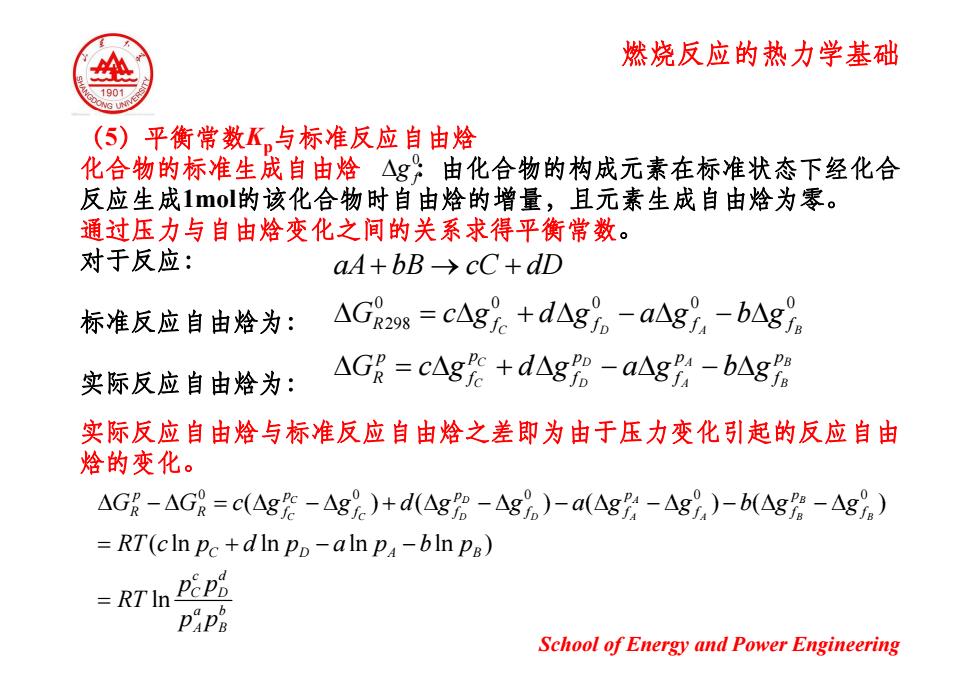 燃烧反应的热力学基础
1901
SHANGDONG UNIVERSITY
（5）平衡常数Kp与标准反应自由焓
化合物的标准生成自由焓 Δg_f^0：由化合物的构成元素在标准状态下经化合
反应生成1mol的该化合物时自由焓的增量，且元素生成自由焓为零。
通过压力与自由焓变化之间的关系求得平衡常数。
对于反应： aA + bB → cC + dD
标准反应自由焓为： ΔG_{R298}^0 = cΔg_{f_C}^0 + dΔg_{f_D}^0 − aΔg_{f_A}^0 − bΔg_{f_B}^0
实际反应自由焓为： ΔG_R^p = cΔg_{f_C}^{p_C} + dΔg_{f_D}^{p_D} − aΔg_{f_A}^{p_A} − bΔg_{f_B}^{p_B}
实际反应自由焓与标准反应自由焓之差即为由于压力变化引起的反应自由
焓的变化。
ΔG_R^p − ΔG_R^0 = c(Δg_{f_C}^{p_C} − Δg_{f_C}^0) + d(Δg_{f_D}^{p_D} − Δg_{f_D}^0) − a(Δg_{f_A}^{p_A} − Δg_{f_A}^0) − b(Δg_{f_B}^{p_B} − Δg_{f_B}^0)
= RT(c ln p_C + d ln p_D − a ln p_A − b ln p_B)
= RT ln (p_C^c p_D^d)/(p_A^a p_B^b)
School of Energy and Power Engineering